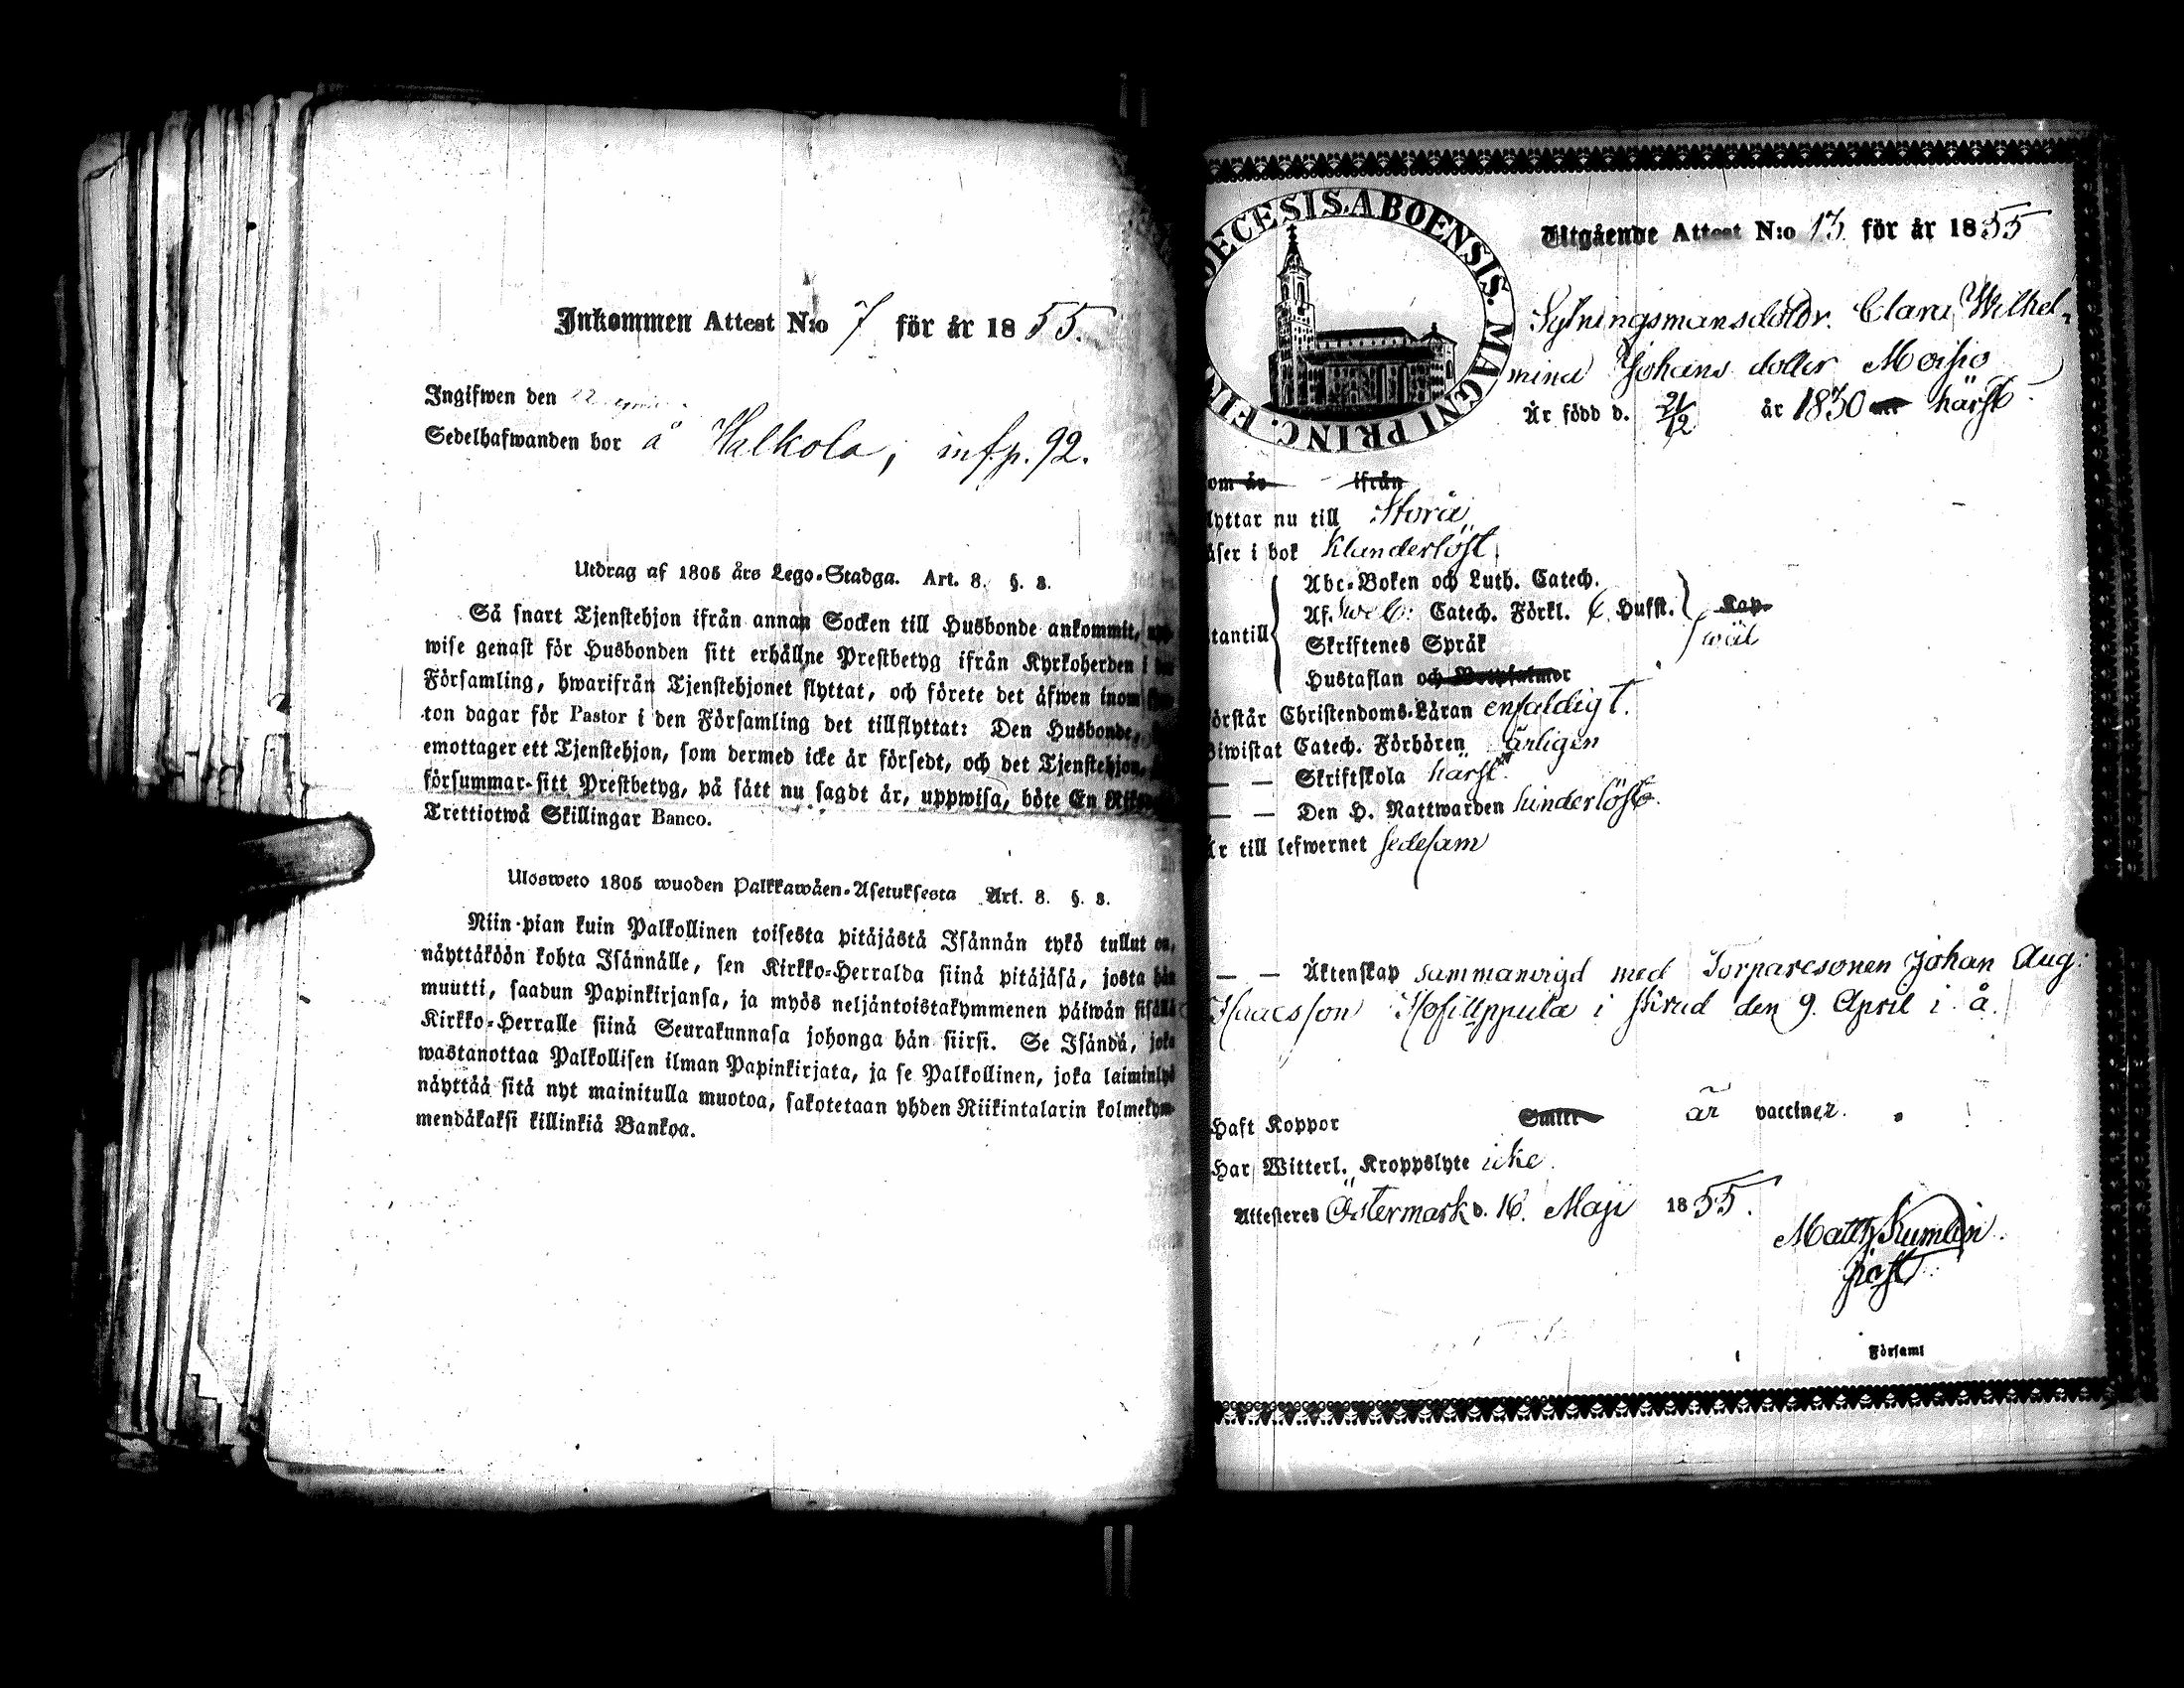 Inkommen Attest N:o 7 för år 1855.
Ingifwen den 22
Sedelhafwanden bor å Walkola, inf. p. 92.
Utdrag af 1805 års Lego-Stadga. Art. 8. §. 8.
Så snart Tjenstehjon ifrån annan Socken till Husbonde ankommit,
wise genast för Husbonden sitt erhållne Prestbetyg ifrån Kyrkoherden i
Församling, hwarifrån Tjenstehjonet flyttat, och förete det äfwen inom
ton dagar för Pastor i den Församling det tillflyttat: Den Husbonde,
emottager ett Tjenstehjon, som dermed icke är försedt, och det Tjenstehjon,
försummar sitt Prestbetyg, på sätt nu sagdt är, uppwisa, böte En
Trettiotwå Skillingar Banco.
Ulosweto 1805 wuoden Palkkawäen-Asetuksesta Art. 8. §. 8.
Niin pian kuin Palkollinen toisesta pitäjästä Isännän tykö tullut on,
näyttäköön kohta Isännälle, sen Kirkko-Herralda siinä pitäjäsä, josta hän
muutti, saadun Papinkirjansa, ja myös neljäntoistakymmenen päiwän sisällä
Kirkko-Herralle siinä Seurakunnasa johonga hän siirsi. Se Isändä, joka
wastanottaa Palkollisen ilman Papinkirjata, ja se Palkollinen, joka laiminlyö
näyttää sitä nyt mainitulla muotoa, sakotetaan yhden Riikintalarin kolmekym-
mendäkaksi killinkiä Bankoa.
DECESIS. ABOENSIS. MAGNI PRINC. FIN
Utgående Attest N:o 13 för år 1855
Sytningsmansdottr. Clara Wilhel-
mina Johans dotter Moisio
Är född d. 21/12 år 1830 härst.
om är ifrån
lyttar nu till Storå
äser i bok klanderlöst
Abc-Boken och Luth. Catech.
Af. Catech. Förkl. Hufst. Kap
tantill Skriftenes Språk wäl
Hustaflan och
örstår Christendoms-Läran enfaldigt.
Biwistat Catech. Förhören årligen
— — Skriftskola härst.
— — Den H. Nattwarden hinderlöst.
Är till lefwernet sedesam
— — Äktenskap sammanvigd med Torparesonen Johan Aug:
Isacsson i den 9. April i. å.
Haft Koppor är vacciner.
Har Witterl. Kroppslyte icke.
Attesteres Östermark d. 16. Maji 1855.
Matth Kumlin
past
Församl